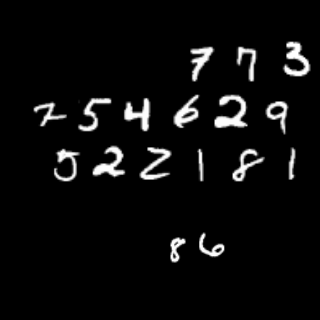 773
754629
522181
86